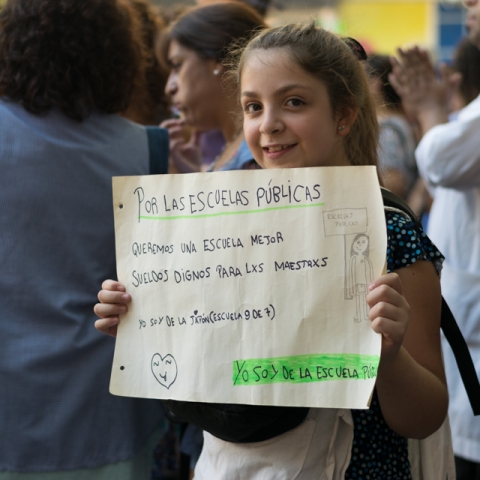 POR LAS ESCUELAS PÚBLICAS
ESCUELA
PUBLICA
QUEREMOS UNA ESCUELA MEJOR
SUELDOS DIGNOS PARA LXS MAESTRXS
YO SOY DE LA JAPÓN (ESCUELA 9 DE 7)
YO SOY DE LA ESCUELA PÚB